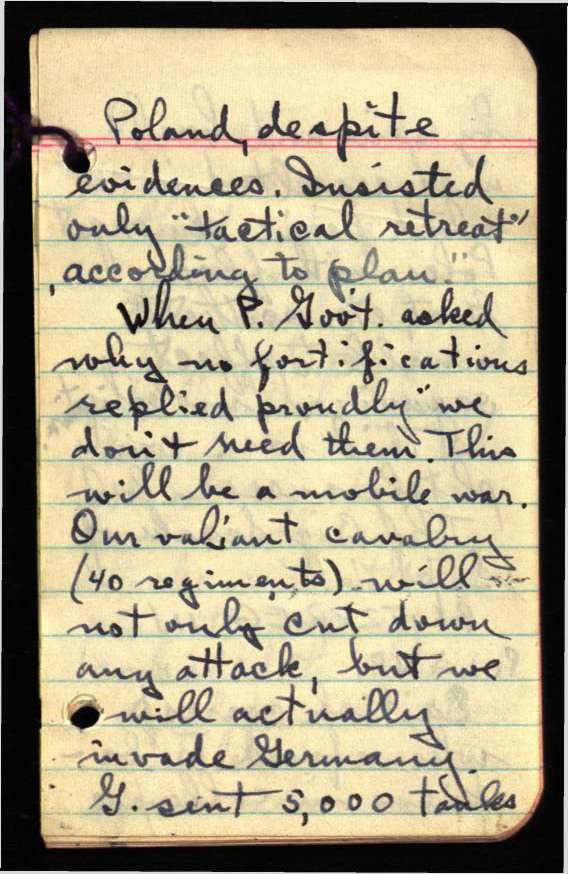 Poland, despite
evidences. Insisted
only "tactical retreat"
according to plan."
When P. Govt. asked
why no fortifications
replied proudly "we
don't need them. This
will be a mobile war.
Our valiant cavalry
(40 regiments) will
not only cut down
any attack, but we
will actually
invade Germany.
G. sent 5,000 tanks